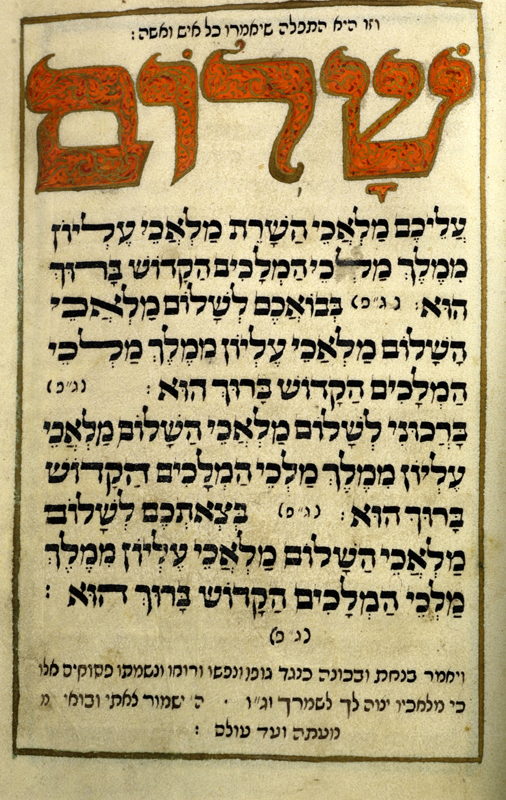 וזו היא התפלה שיאמרו כל איש ואשה :
שָׁלוֹם
עֲלֵיכֶם מַלְאֲכֵי הַשָּׁרֵת מַלְאֲכֵי עֶלְיוֹן
מִמֶּלֶךְ מַלְכֵי הַמְּלָכִים הַקָּדוֹשׁ בָּרוּךְ
הוּא : (ג"פ) בְּבוֹאֲכֶם לְשָׁלוֹם מַלְאֲכֵי
הַשָּׁלוֹם מַלְאֲכֵי עֶלְיוֹן מִמֶּלֶךְ מַלְכֵי
הַמְּלָכִים הַקָּדוֹשׁ בָּרוּךְ הוּא : (ג"פ)
בָּרְכוּנִי לְשָׁלוֹם מַלְאֲכֵי הַשָּׁלוֹם מַלְאֲכֵי
עֶלְיוֹן מִמֶּלֶךְ מַלְכֵי הַמְּלָכִים הַקָּדוֹשׁ
בָּרוּךְ הוּא : (ג"פ) בְּצֵאתְכֶם לְשָׁלוֹם
מַלְאֲכֵי הַשָּׁלוֹם מַלְאֲכֵי עֶלְיוֹן מִמֶּלֶךְ
מַלְכֵי הַמְּלָכִים הַקָּדוֹשׁ בָּרוּךְ הוּא :
(ג"פ)
ויאמר בנחת ובכונה כנגד גופו ונפשו ורוחו ונשמתו פסוקים אלו
כי מלאכיו יצוה לך לשמרך וג"ו · ה' ישמור צאתי ובואי מ
מעתה ועד עולם :